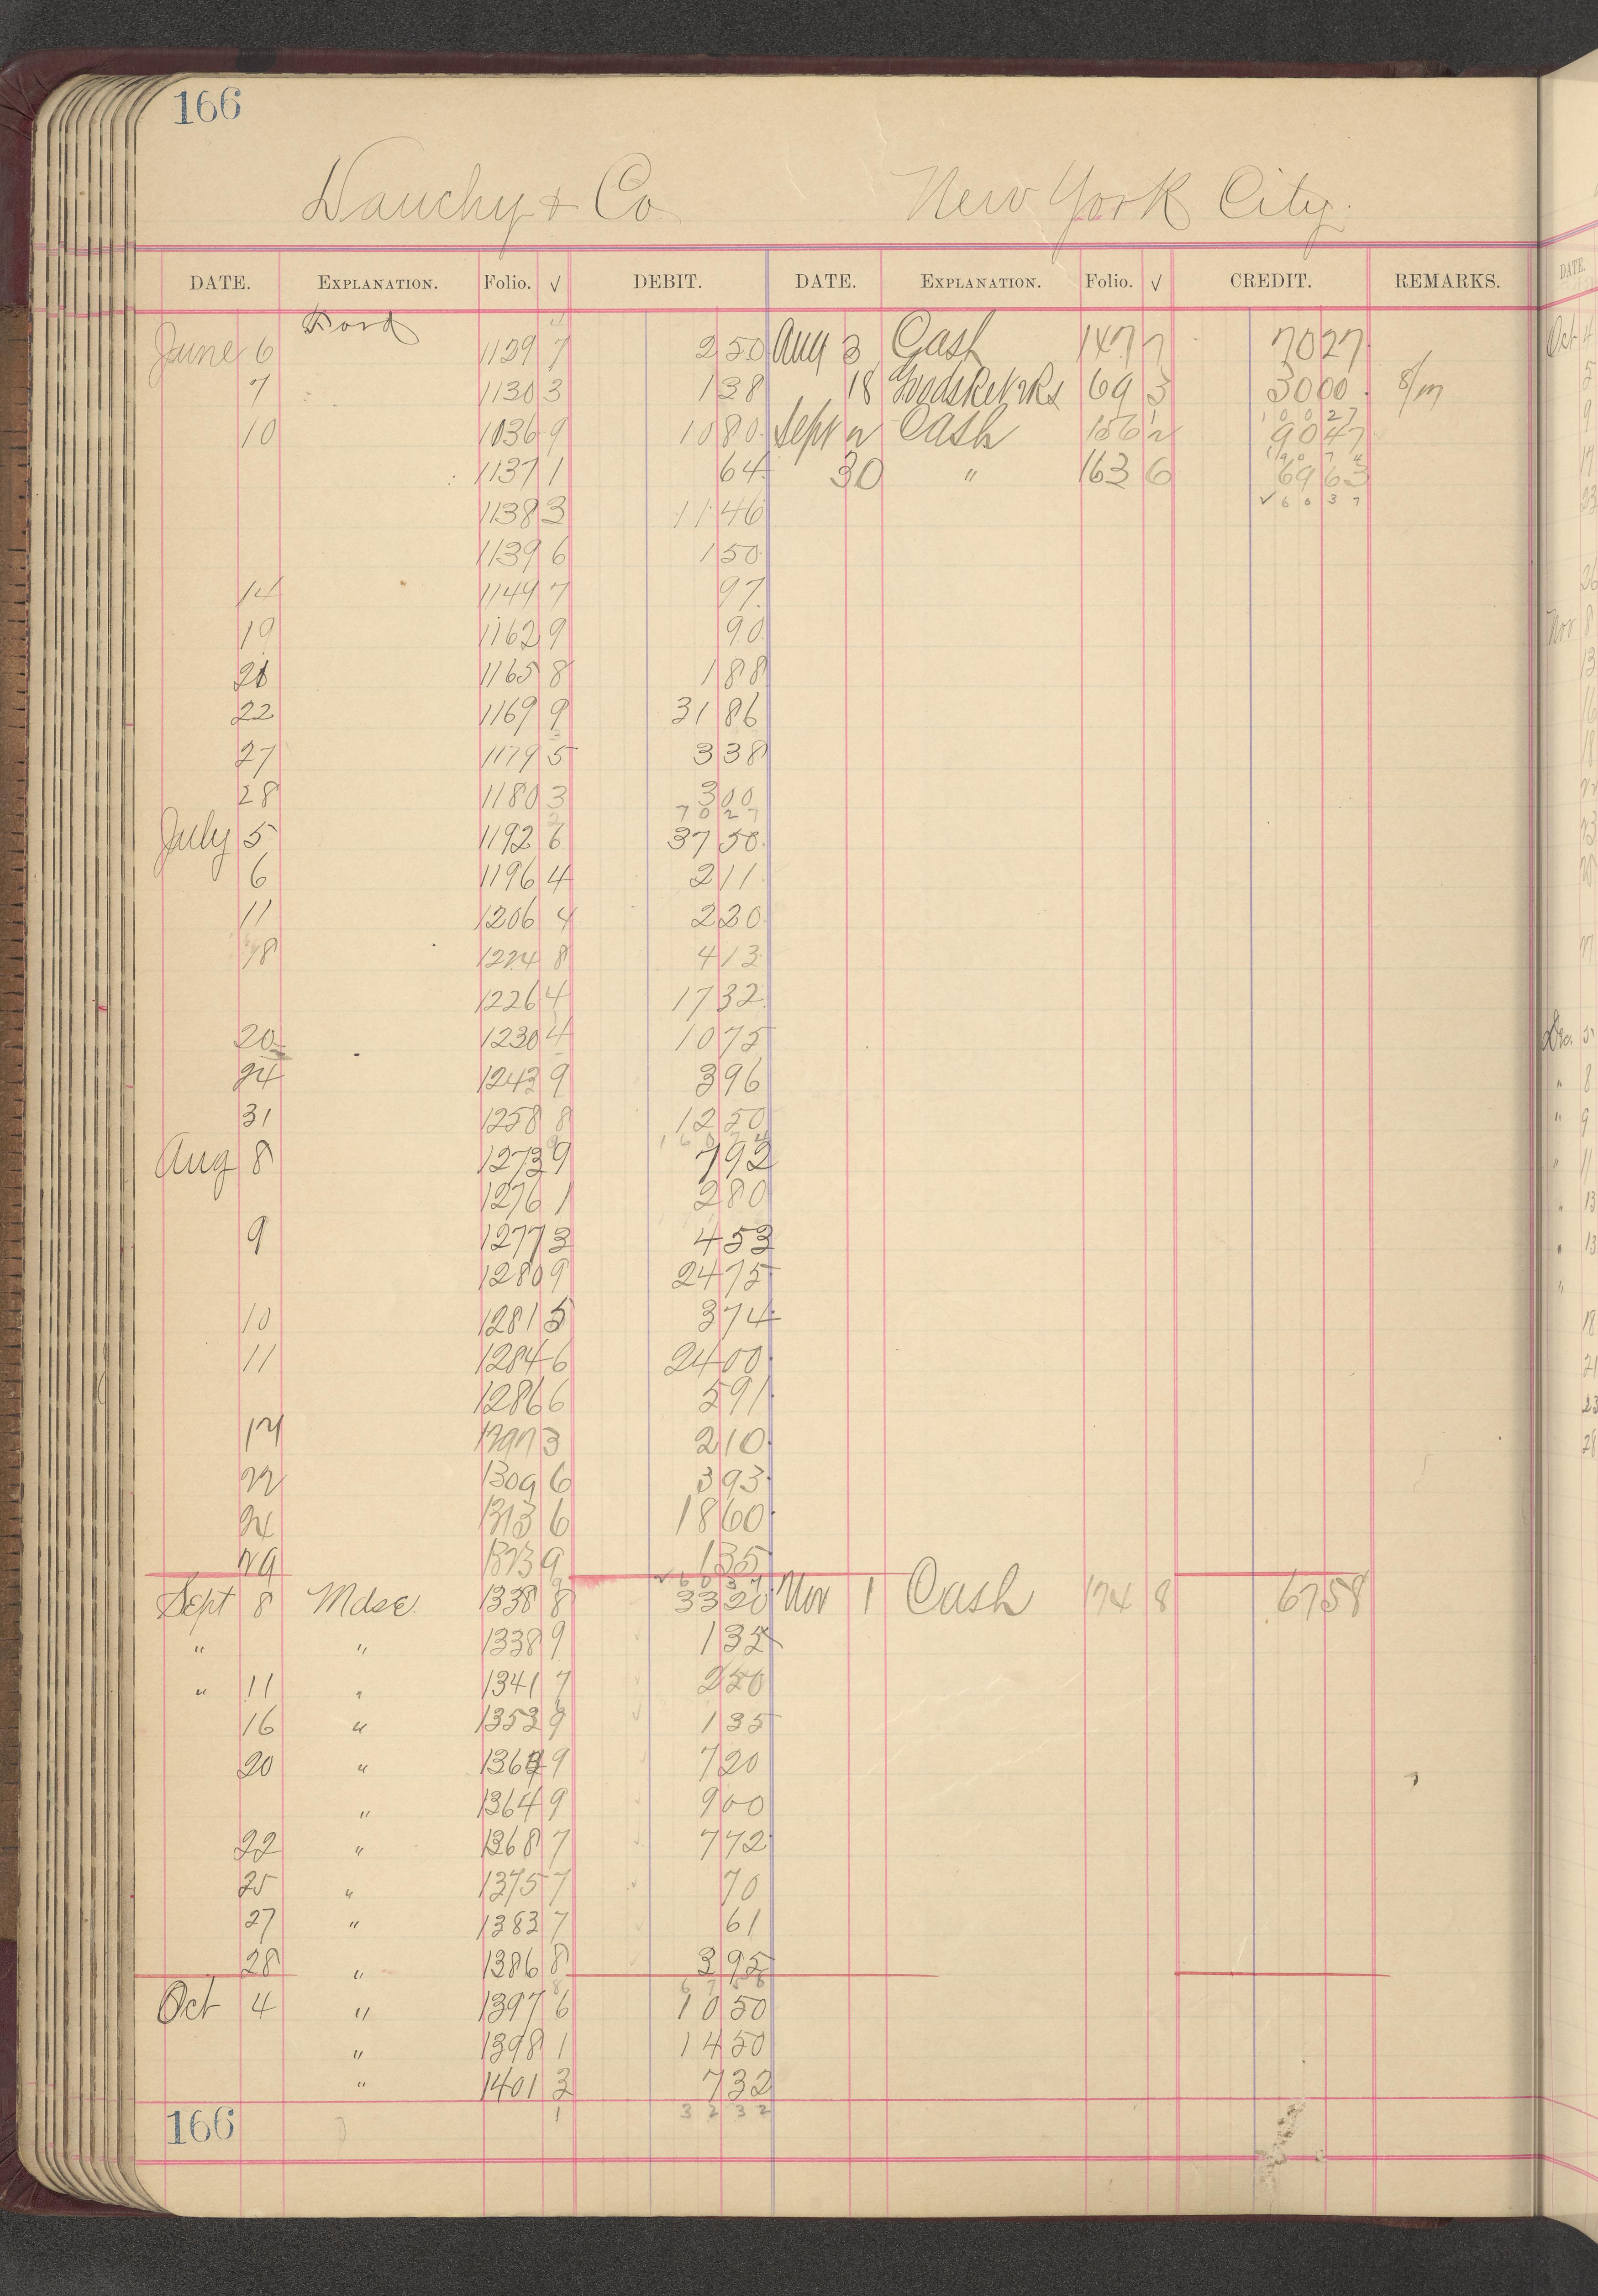 166
Dauchy & Co New York City.
DATE. EXPLANATION. Folio. √ DEBIT. DATE. EXPLANATION. Folio. √ CREDIT. REMARKS.
Ford
June 6 1129 7 2 50 Aug 3 Cash 147 7 70 27
7 1130 3 1 38 18 69 3 30 00 8/m
1 0 0 2 7
10 1036 9 10 80 Sept 2 Cash 156 2 90 47
1 9 0 7 4
1137 1 64 30 " 163 6 69 63
√ 6 0 3 7
1138 3 11 46
1139 6 1 50
14 1149 7 97
19 1162 9 90
21 1165 8 1 88
22 1169 9 31 86
27 1179 5 3 38
28 1180 3 3 00
7 0 2 7
July 5 1192 6 37 50
6 1196 4 2 11
11 1206 4 2 20
18 1224 8 4 13
1226 4 17 32
20 1230 4 10 75
24 1243 9 3 96
31 1258 8 12 50
Aug 8 1273 9 7 92
1276 1 2 80
9 1277 3 4 53
1280 9 24 75
10 1281 5 3 74
11 1284 6 24 00
1286 6 5 91
17 1297 3 2 10
22 1309 6 3 93
24 1313 6 18 60
29 1323 9 1 35
Sept 8 Mdse. 1338 8 33 20 Nov 1 Cash 174 8 67 58
" " 1338 9 1 35
" 11 " 1341 7 2 50
16 " 1353 9 1 35
20 " 1364 9 7 20
" 1364 9 9 00
22 " 1368 7 7 72
25 " 1375 7 70
27 " 1383 7 61
28 " 1386 8 3 95
6 7 5 8
Oct 4 " 1397 6 10 50
" 1398 1 14 50
" 1401 3 7 32
1 3 2 3 2
166